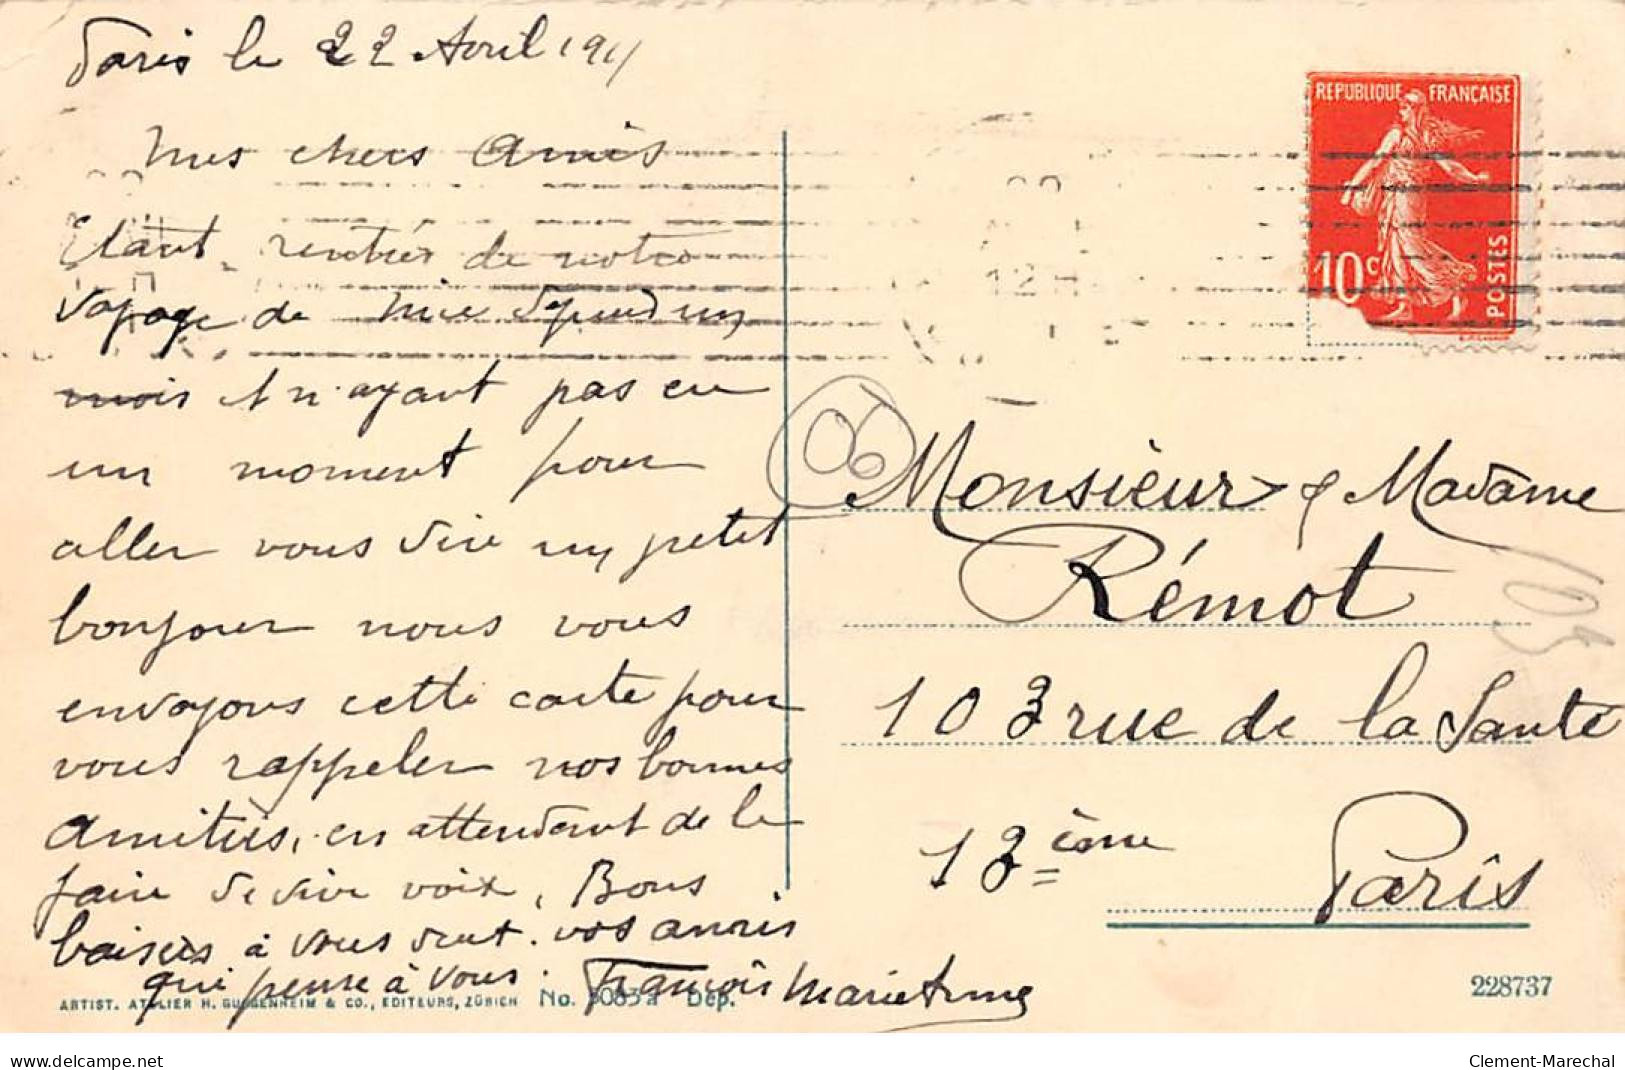 Paris le 22 Avril 1911
Mes chers Amis
Etant rentrés de notre
voyage de Nice depuis un
mois et n'ayant pas eu
un moment pour
aller vous dire un petit
bonjour nous vous
envoyons cette carte pour
vous rappeler nos bonnes
Amitiés, en attendant de le
faire de vive voix. Bons
baisers à vous deux. vos amis
qui pense à vous. François Marie Anne
REPUBLIQUE FRANÇAISE
10c
POSTES
12 H
Monsieur & Madame
Rémot
103 rue de la Santé
13 ème
Paris
105
ARTIST. ATELIER H. GUGGENHEIM & CO., EDITEURS, ZÜRICH No. 5085a Dép.
228737
www.delcampe.net
Clement-Marechal